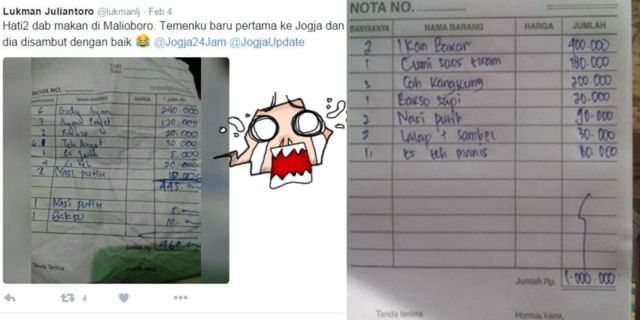 Lukman Juliantoro @lukmanlj · Feb 4
Hati2 dab makan di Malioboro. Temenku baru pertama ke Jogja dan
dia disambut dengan baik 😂 @Jogja24Jam @JogjaUpdate
NOTA NO.
BANYAKNYA NAMA BARANG HARGA JUMLAH
6 240.000
120.000
2 Bakso 20.000
30.000
5.000
20.000
2 Nasi putih 10.000
445.000
1 Nasi putih
1 Bakso 10.
Jumlah Rp. 460.
Tanda Terima
74
NOTA NO.
BANYAKNYA NAMA BARANG HARGA JUMLAH
2 Ikan Bakar 400.000
1 Cumi saos tiram 180.000
3 Cah Kangkung 200.000
1 Bakso sapi 20.000
2 Nasi putih
2 Lalap + sambel 30.000
11 es teh manis 80.000
Jumlah Rp. 1.000.000
Tanda terima Hormat kami,